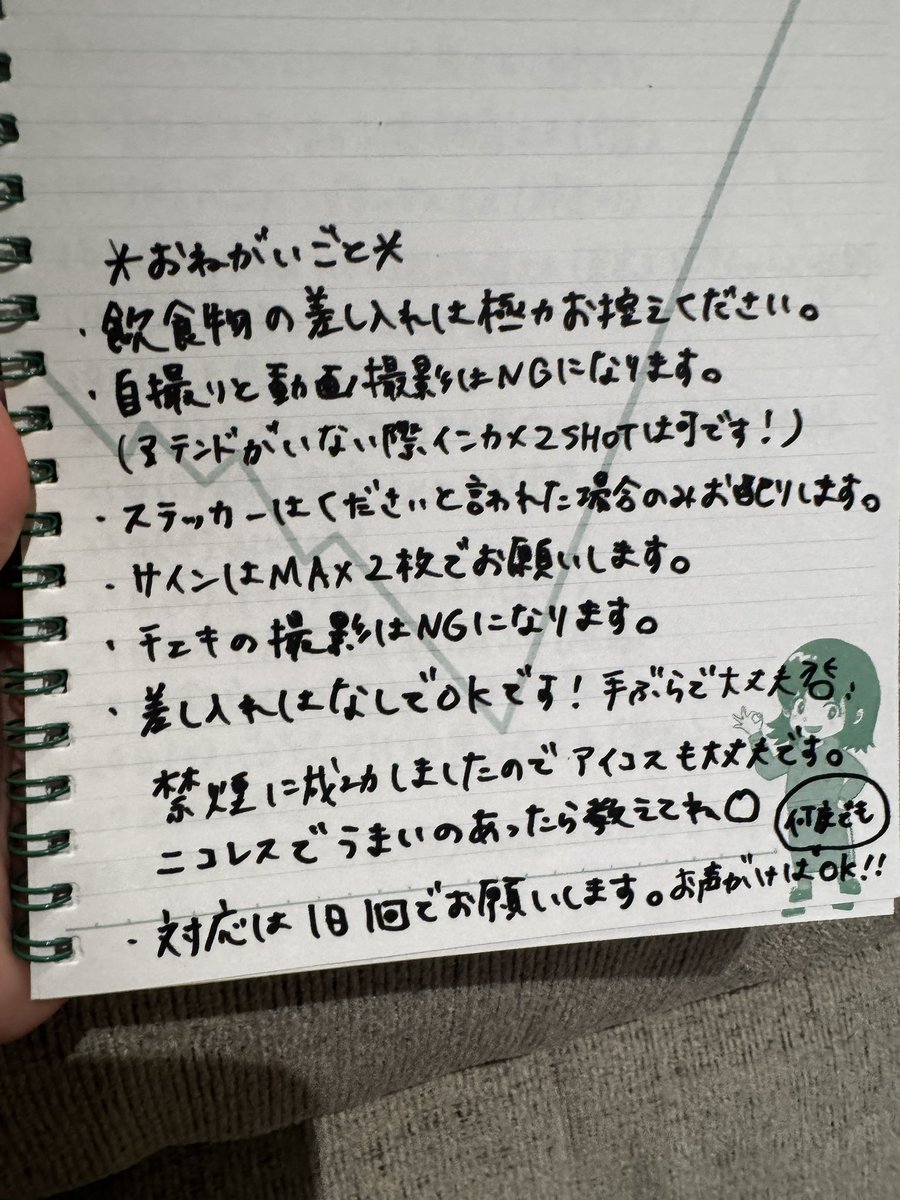 *おねがいごと*
・飲食物の差し入れは極力お控えください。
・自撮りと動画撮影はNGになります。
(アテンドがいない際インカメ2SHOTは可です!)
・ステッカーはくださいと言われた場合のみお配りします。
・サインはMAX2枚でお願いします。
・チェキの撮影はNGになります。
・差し入れはなしでOKです!手ぶらで大丈夫
禁煙に成功しましたのでアイコスも大丈夫です。
ニコレスでうまいのあったら教えてね○
何まででも
・対応は1日1回でお願いします。お声がけはOK!!